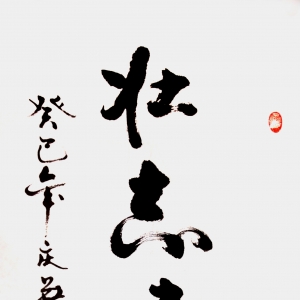 壮志
癸巳年庆